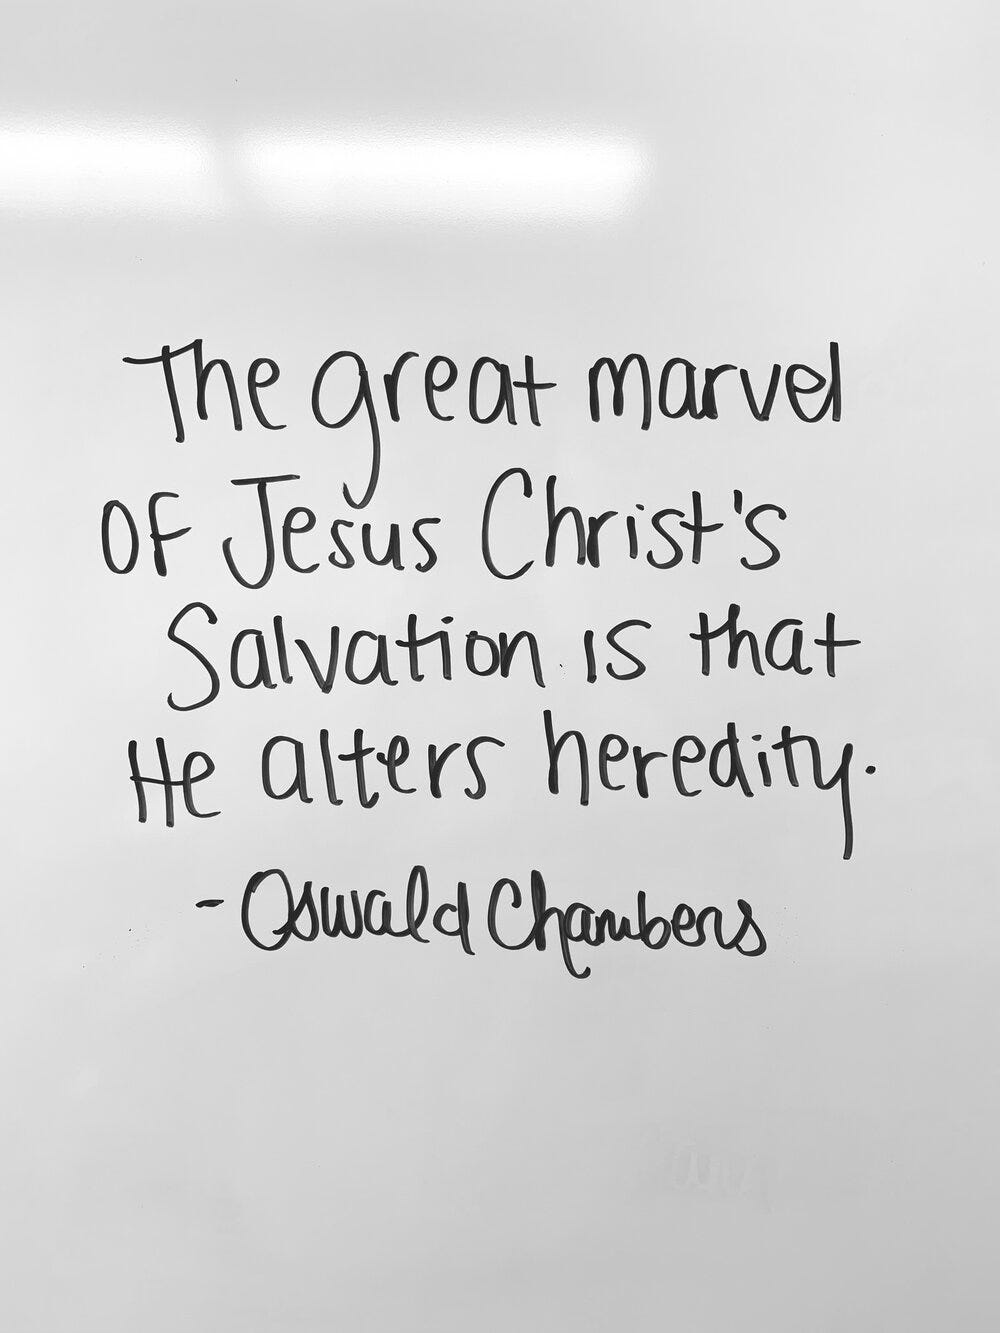 The great marvel
of Jesus Christ's
Salvation is that
He alters heredity.
- Oswald Chambers